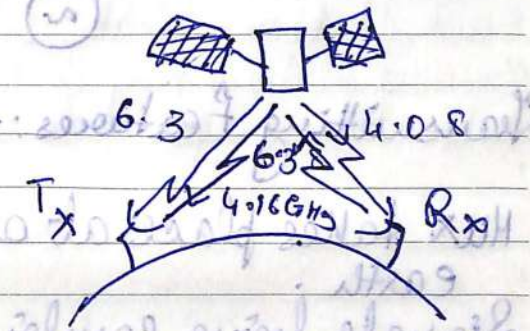 6.3
4.08
6.3
4.16GHz
Tx
Rx